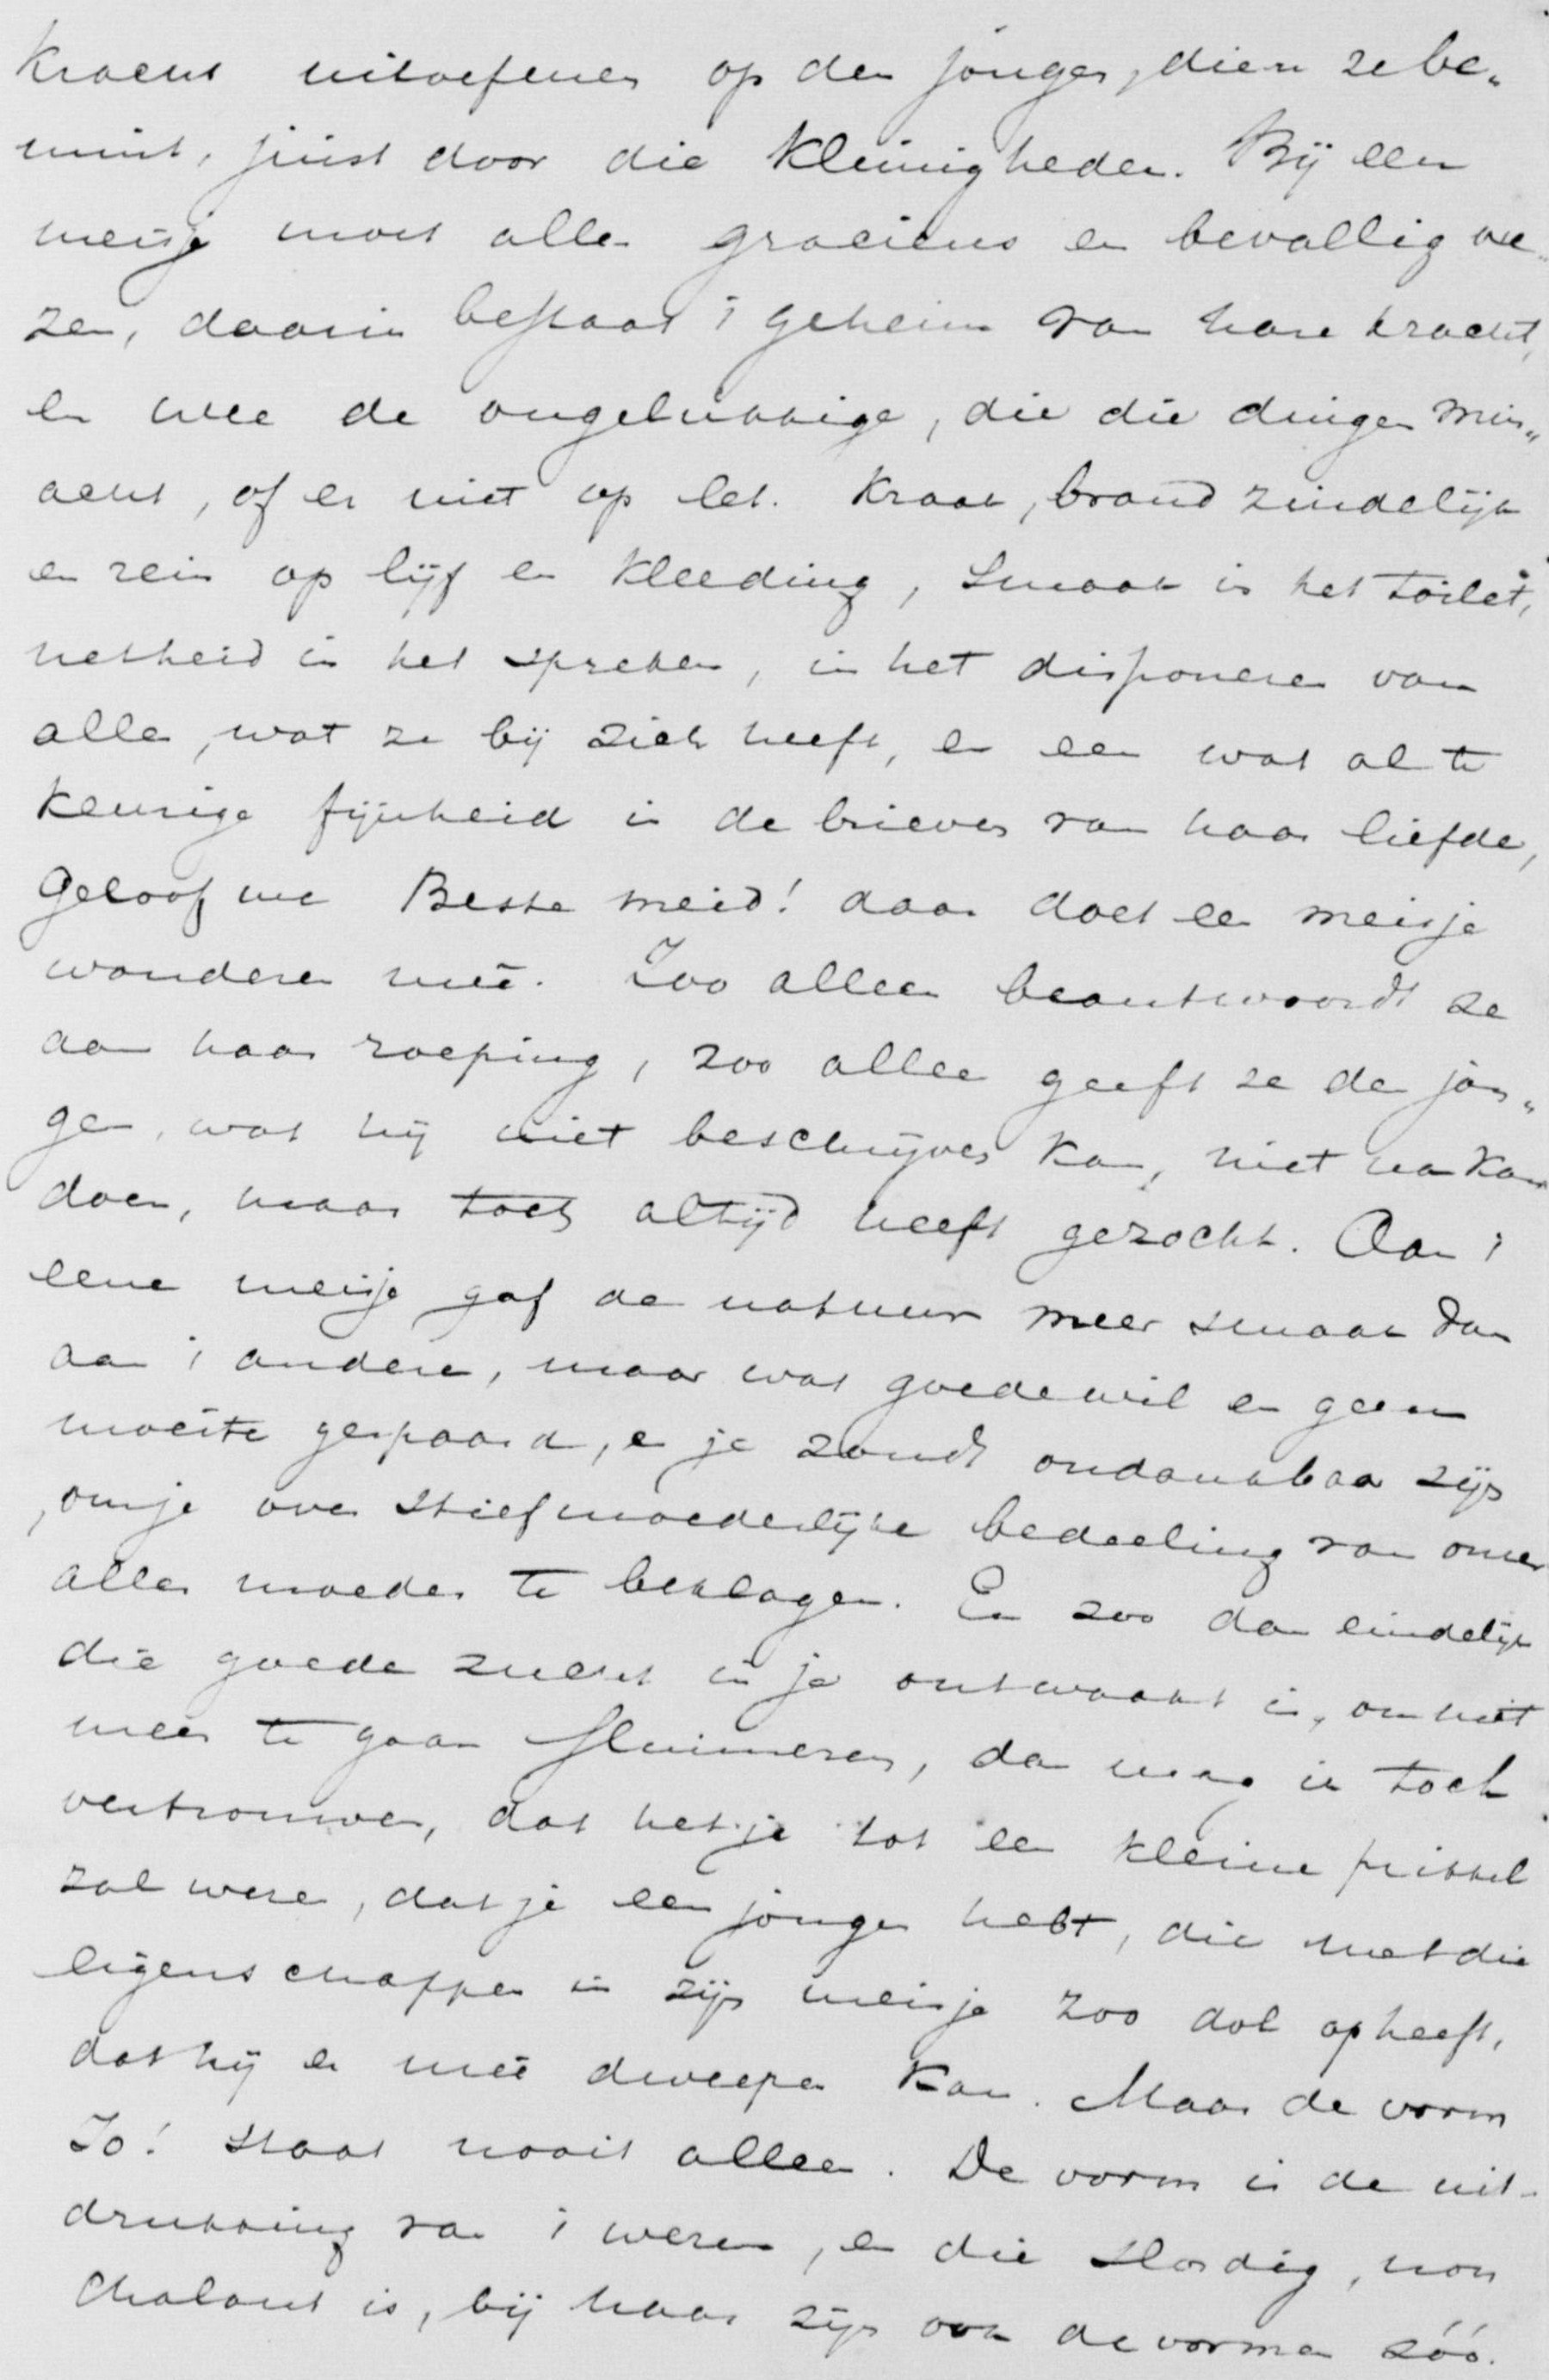 kracht uitoefenen op den jongen, dien ze be„
mint, juist door die kleinigheden. Bij een
meisje moet alles gracieus en bevallig we„
zen, daarin bestaat 't geheim van hare kracht,
en wee de ongelukkige, die die dingen min„
acht, of er niet op let. Kraak, brand zindelijk
en rein op lijf en kleeding, smaak in het toilet,
netheid in het spreken, in het disponeren van
alles, wat ze bij zich heeft, en een wat al te
keurige fijnheid in de brieven van haar liefde,
geloof me Beste meid! daar doet een meisje
wonderen meê. Zoo alleen beantwoordt ze
aan haar roeping, zoo alleen geeft ze den jon„
gen, wat hij niet beschrijven kan, niet na kan
doen, maar toch altijd heeft gezocht. Aan 't
eene meisje gaf de natuur meer smaak dan
aan 't andere, maar wat goede wil en geen
moeite gespaard, en je zoudt ondankbaar zijn
, om je over stiefmoederlijke bedeeling van onze
aller moeder te beklagen. En zoo dan eindelijk
die goede zucht in je ontwaakt is, om niet
meer te gaan sluimeren, dan mag ik toch
vertrouwen, dat het je tot een kleine prikkel
zal wezen, dat je een jongen hebt, die met die
eigenschappen in zijn meisje zoo dol op heeft,
dat hij er meê dweepen kan. Maar de vorm
Jo! staat nooit alleen. De vorm is de uit-
drukking van 't wezen, en die slordig, non
chalant is, bij haar zijn ook de vormen zóó.